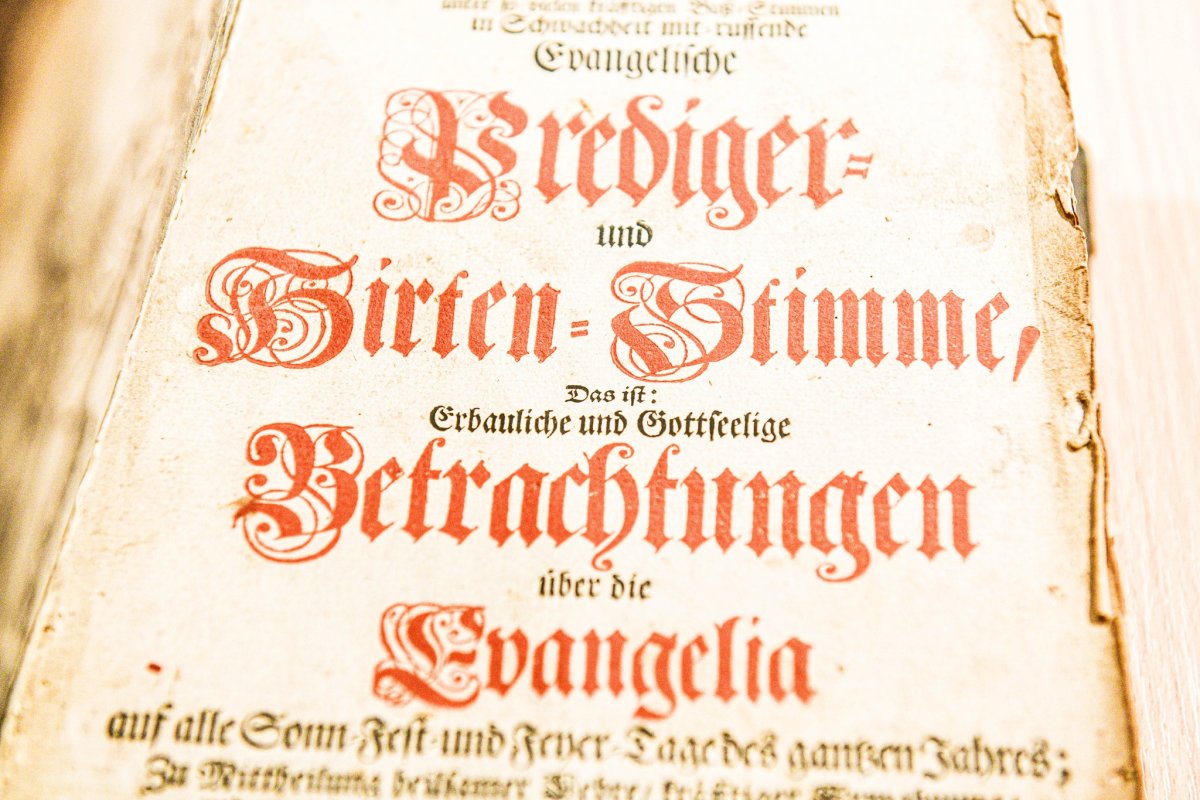 unter so vielen kräfftigen Buß-Stimmen
in Schwachheit mit-ruffende
Evangelische
Prediger-
und
Hirten-Stimme,
Das ist:
Erbauliche und Gottseelige
Betrachtungen
über die
Evangelia
auf alle Sonn-Fest-und Feyer-Tage des gantzen Jahres;
Zu Mittheilung heilsamer Lehre/ kräfftiger